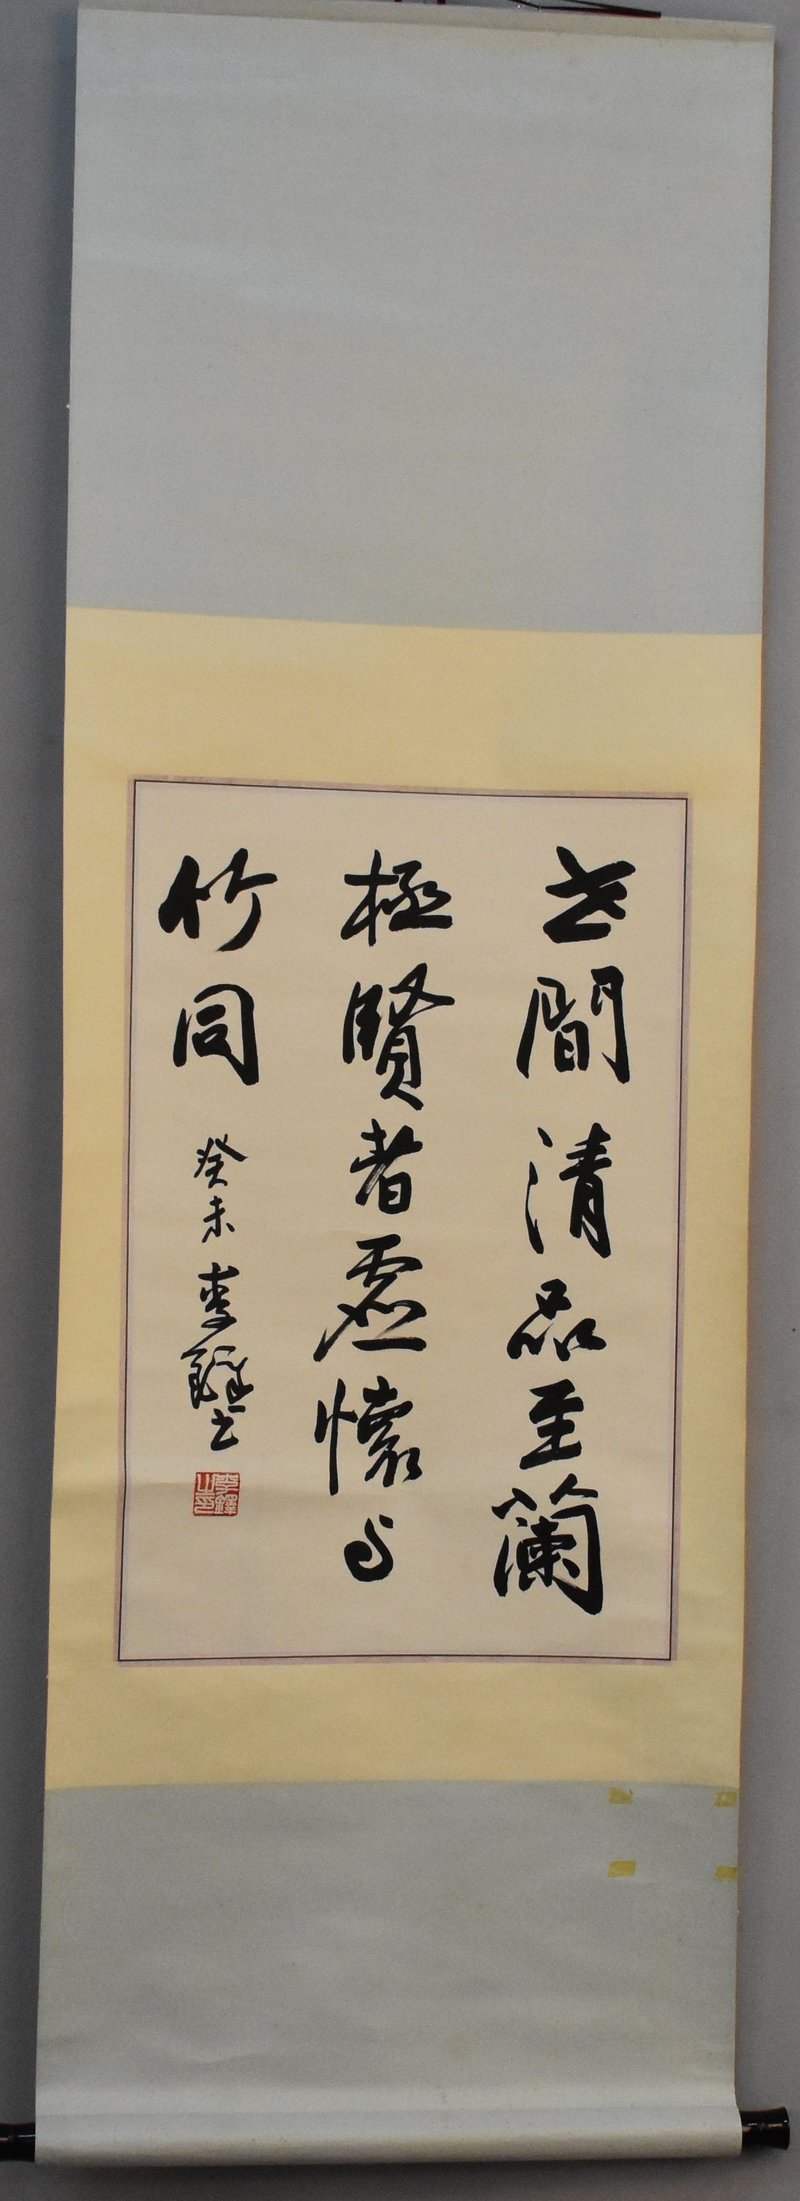 世間清品至蘭
極賢者虛懷与
竹同
癸未李鐸書
李鐸之印